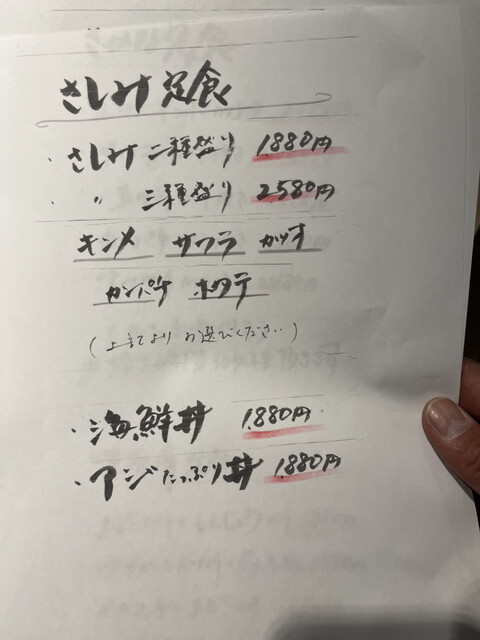 さしみ定食
・さしみ二種盛り 1,880円
・ 〃 三種盛り 2,580円
キンメ サワラ カツオ
カンパチ ホタテ
(上記よりお選びください)
・海鮮丼 1,880円
・アジたっぷり丼 1,880円